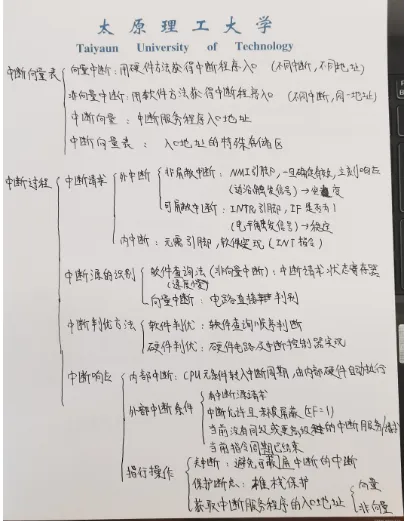 太原理工大学
Taiyaun University of Technology
中断向量表 向量中断：用硬件方法获得中断程序入口 (不同中断，不同地址)
非向量中断：用软件方法获得中断程序入口 (不同中断，同一地址)
中断向量：中断服务程序入口地址
中断向量表：入口地址的特殊存储区
中断过程 中断请求 外中断 非屏蔽中断：NMI引脚，一旦确定有效，立刻响应
(边沿触发信号)→
可屏蔽中断：INTR引脚，IF是否为1
(电平触发信号)→稳定
内中断：无需引脚，软件实现 (INT指令)
中断源的识别 软件查询法 (非向量中断)：中断请求状态寄存器
(速度慢)
向量中断：电路直接判别
中断判优方法 软件判优：软件查询顺序判断
硬件判优：硬件电路及中断控制器实现
中断响应 内部中断：CPU无条件转入中断周期，由内部硬件自动执行
外部中断条件 有中断源请求
中断允许且未被屏蔽 (IF=1)
当前没有同级或更高级的中断服务/请求
当前指令周期已结束
执行操作 关中断：避免可屏蔽中断的中断
保护断点：堆栈保护
获取中断服务程序的入口地址 向量
非向量